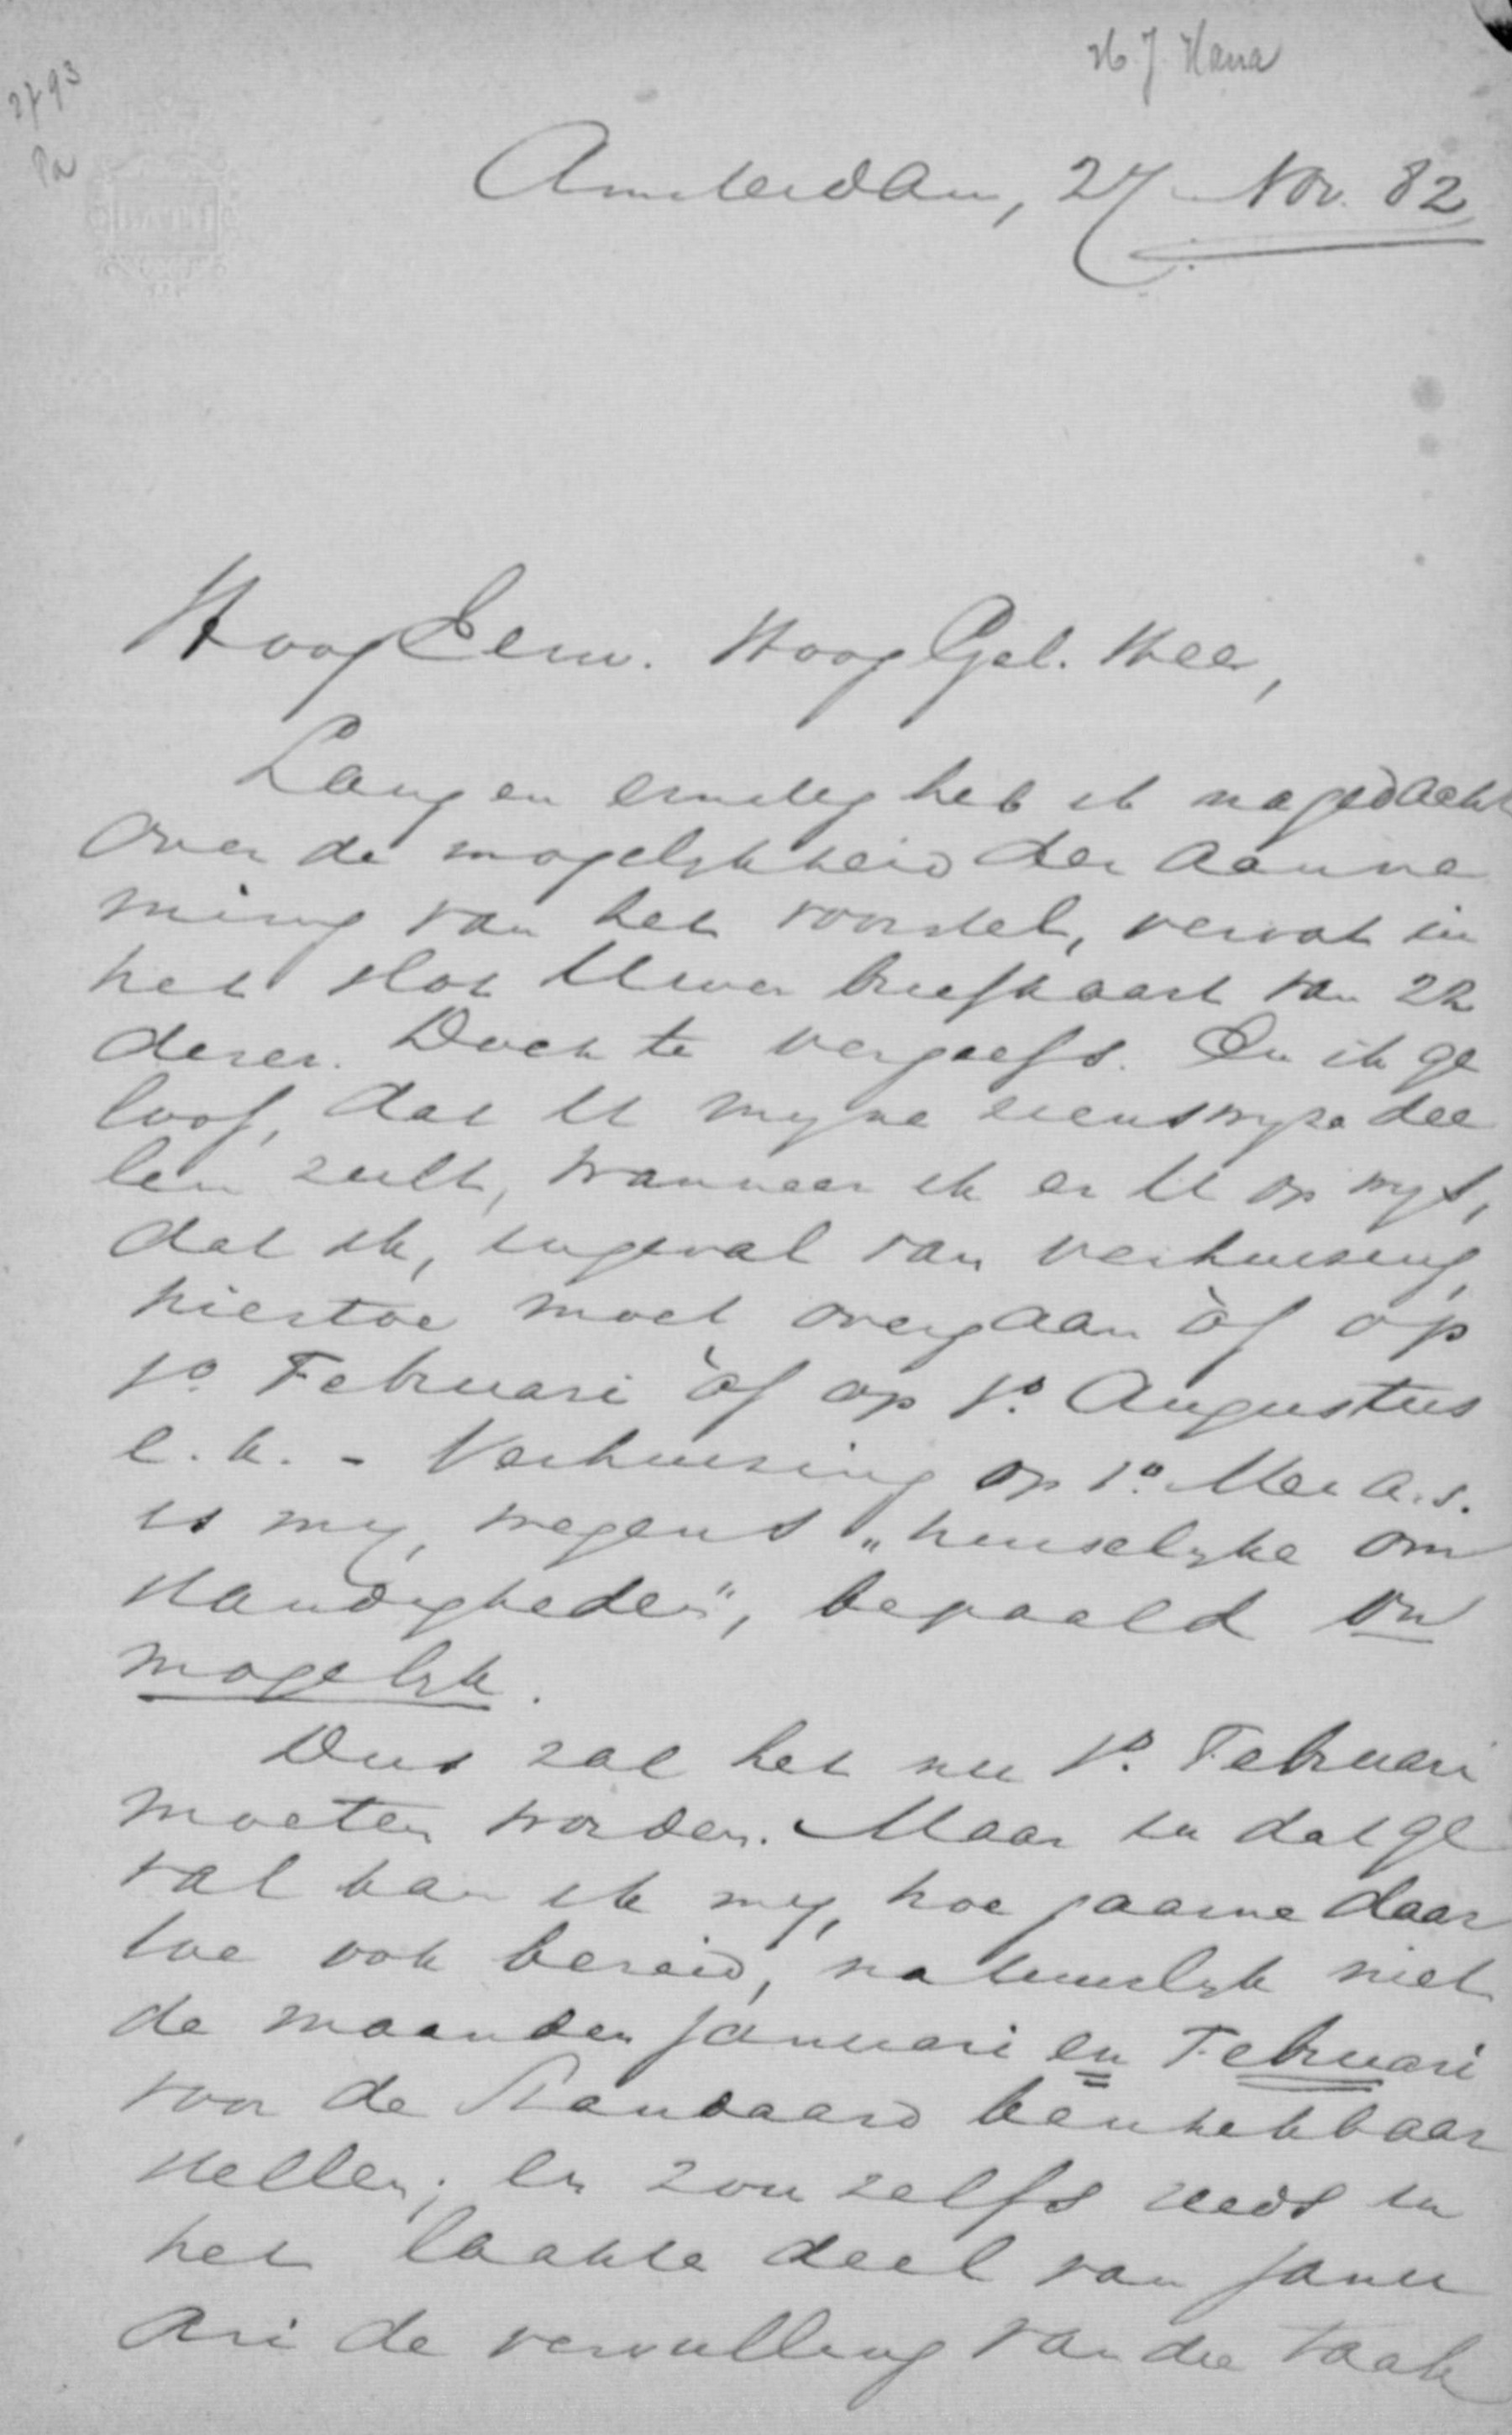 H. J. Hana
2793
Pa
Amsterdam, 27 Nov. 82
HoogEerw. HoogGel. Heer,
Lang en ernstig heb ik nagedacht
over de mogelykheid der aanne
ming van het voorstel, vervat in
het slot Uwer briefkaart van 22
dezer. Doch te vergeefs. En ik ge
loof, dat U myne zienswyze dee
len zult, wanneer ik er U op wys,
dat ik, ingeval van verhuizing,
hiertoe moet overgaan òf op
1o. Februari òf op 1o. Augustus
e.k. - Verhuizing op 1o. Mei a.s.
is my, wegens „huiselyke om
standigheden", bepaald on
mogelyk.
Dus zal het nu 1o. Februari
moeten worden. Maar in dat ge
val kan ik my, hoe gaarne daar
toe ook bereid, natuurlyk niet
de maanden Januari en Februari
voor de Standaard beschikbaar
stellen; en zou zelfs reeds in
het laatste deel van Janu
ari de vervulling van die taak